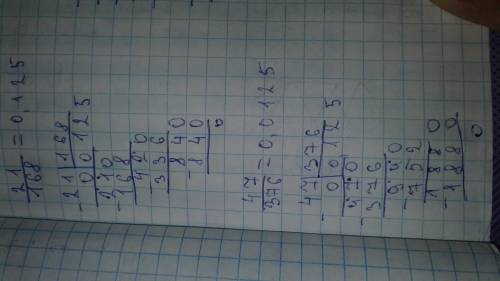 21/168 = 0,125
-21|168
0 0 125
-210
168
-420
336
-840
840
0
47/376 = 0,0125
-47|376
0 0 125
-470
376
-940
752
-1880
1880
0